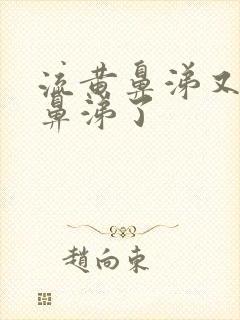 流黄鼻涕又
鼻涕了
趙向東